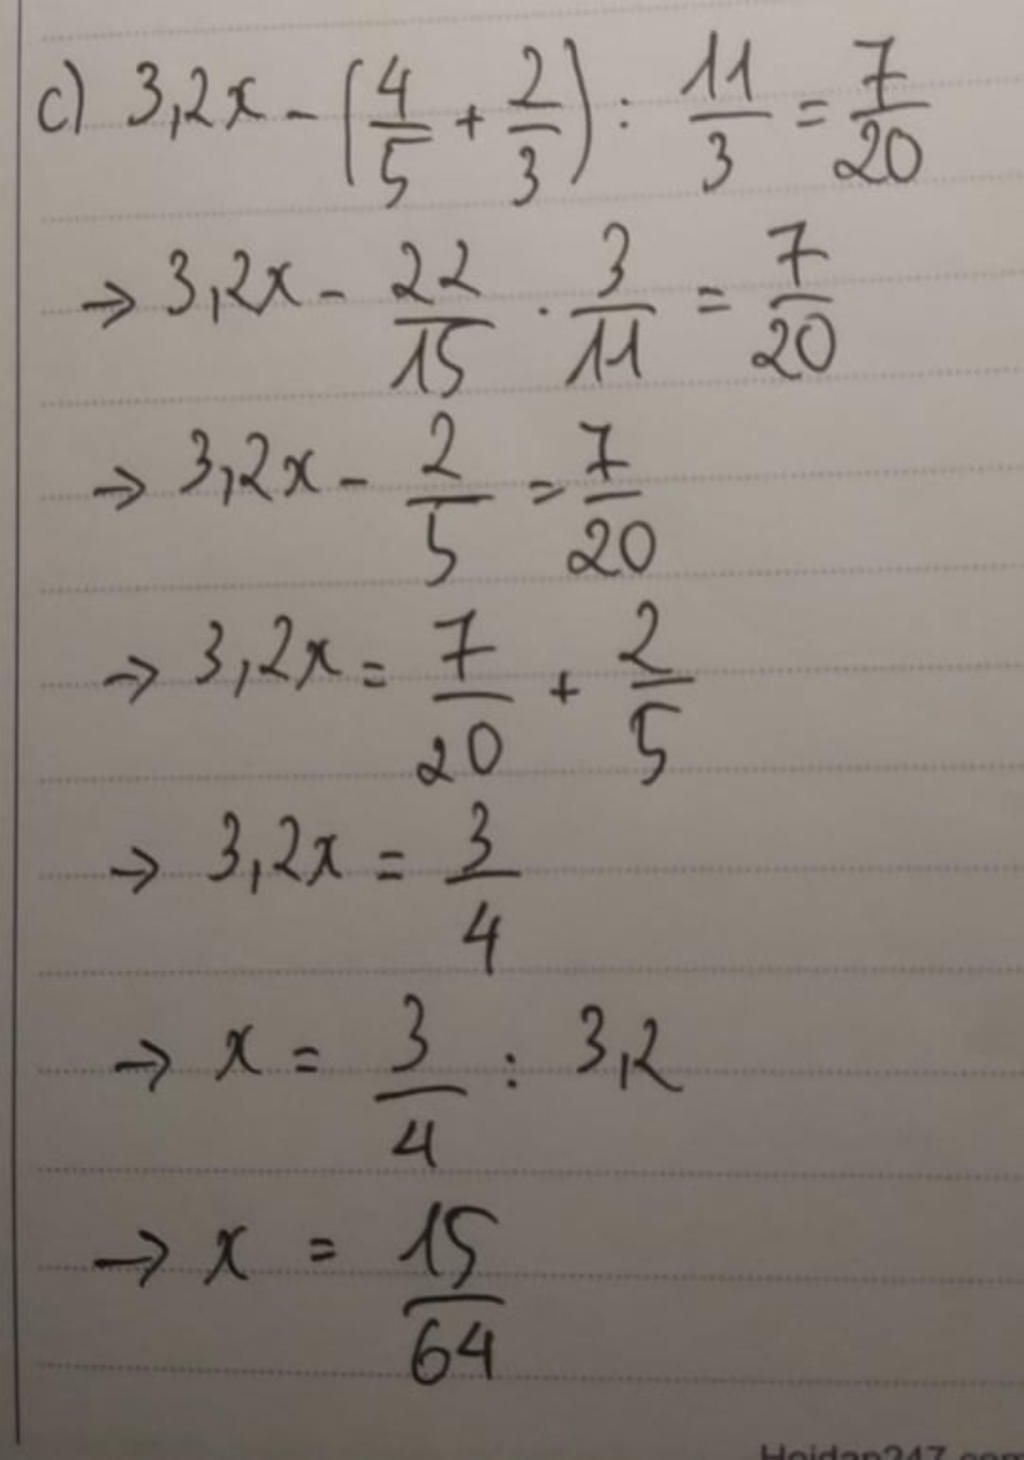 c) 3,2x - (4/5 + 2/3) : 11/3 = 7/20
→ 3,2x - 22/15 . 3/11 = 7/20
→ 3,2x - 2/5 = 7/20
→ 3,2x = 7/20 + 2/5
→ 3,2x = 3/4
→ x = 3/4 : 3,2
→ x = 15/64